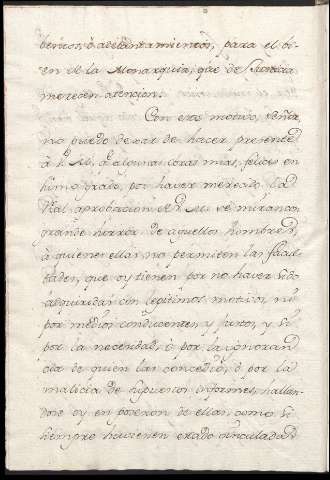 beneos, ò adelantamientos, para el bi-
en de la Monarquia, que de Justicia
merecen atencion.
Con este motivo, Señor,
no puedo dexar de hacer presente
à V. M. q algunas cosas mias, felices en
sumo grado, por haver merecido la
Real aprobacion de V. M. se miran con
grande horror de aquellos hombres,
à quienes ellas no permiten las facul-
tades, que oy tienen por no haver sido
adquiridas con legitimos motivos, ni
por medios conducentes, y justos, y si
por la necesidad, ò por la ignoran-
cia de quien las concediò, ò por la
malicia de hipuricos Informes, hallan-
dose oy en posesion de ellas, como si
siempre huviesen estado vinculadas